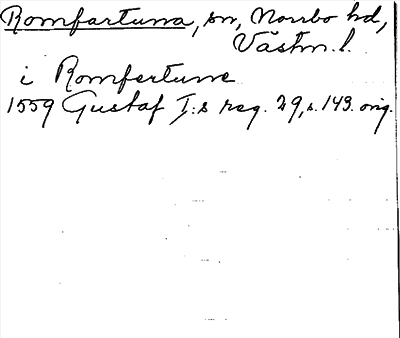 Romfartuna, sn, Norrbo hd,
Västm. l.
i Romfertune
1559 Gustaf I:s reg. 29, s. 143. orig.